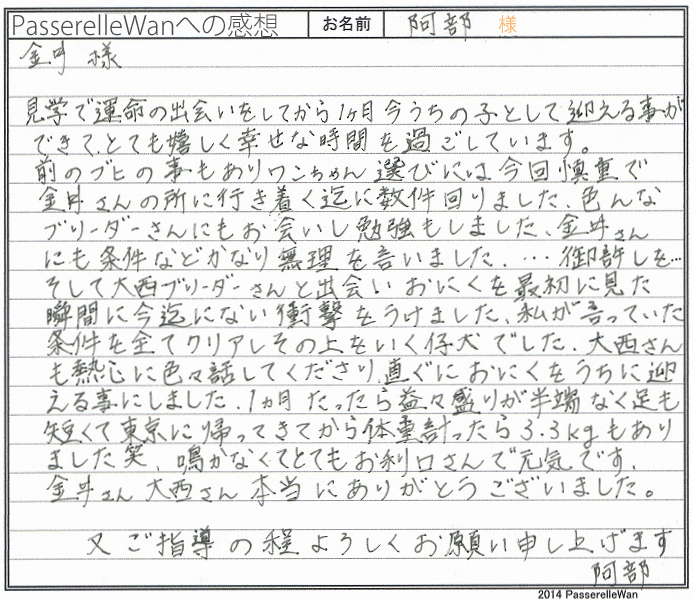 PasserelleWanへの感想 お名前 阿部 様
金井 様
見学で運命の出会いをしてから1ヶ月今うちの子として迎える事が
できて、とても嬉しく幸せな時間を過ごしています。
前のブヒの事もありワンちゃん選びには今回慎重で
金井さんの所に行き着く迄に数件回りました、色んな
ブリーダーさんにもお会いし勉強もしました、金井さん
にも条件などかなり無理を言いました、…御許しを…
そして大西ブリーダーさんと出会いおにくを最初に見た
瞬間に今迄にない衝撃をうけました、私が言っていた
条件を全てクリアしその上をいく仔犬でした、大西さん
も熱心に色々話してくださり直ぐにおにくをうちに迎
える事にしました、1ヵ月たったら益々盛りが半端なく足も
短くて東京に帰ってきてから体重計ったら3.3kgもあり
ました笑、鳴かなくてとてもお利口さんで元気です、
金井さん大西さん本当にありがとうございました。
又ご指導の程よろしくお願い申し上げます
阿部
2014 PasserelleWan